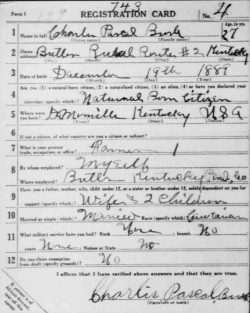 Form 1
743
REGISTRATION CARD
No. 4
1 Name in full Charlie Pascal Bush
Age, in yrs.
27
2 Home address Butler Rural Route #2 Kentucky
3 Date of birth December 19th 1889
4 Natural Born Citizen
5 Where were you born? Kentucky USA
6 If not a citizen, of what country are you a citizen or subject?
7 What is your present trade, occupation, or office? Farmer
8 By whom employed? Myself
Where employed? Butler Kentucky
9 Have you a father, mother, wife, child under 12, or a sister or brother under 12, solely dependent on you for support (specify which)? Wife & 2 Children
10 Married or single (which)? Married Race (specify which)? Caucasian
11 What military service have you had? Rank None branch No
years None Nation or State No
12 Do you claim exemption from draft (specify grounds)? No
I affirm that I have verified above answers and that they are true.
Charlie Pascal Bush